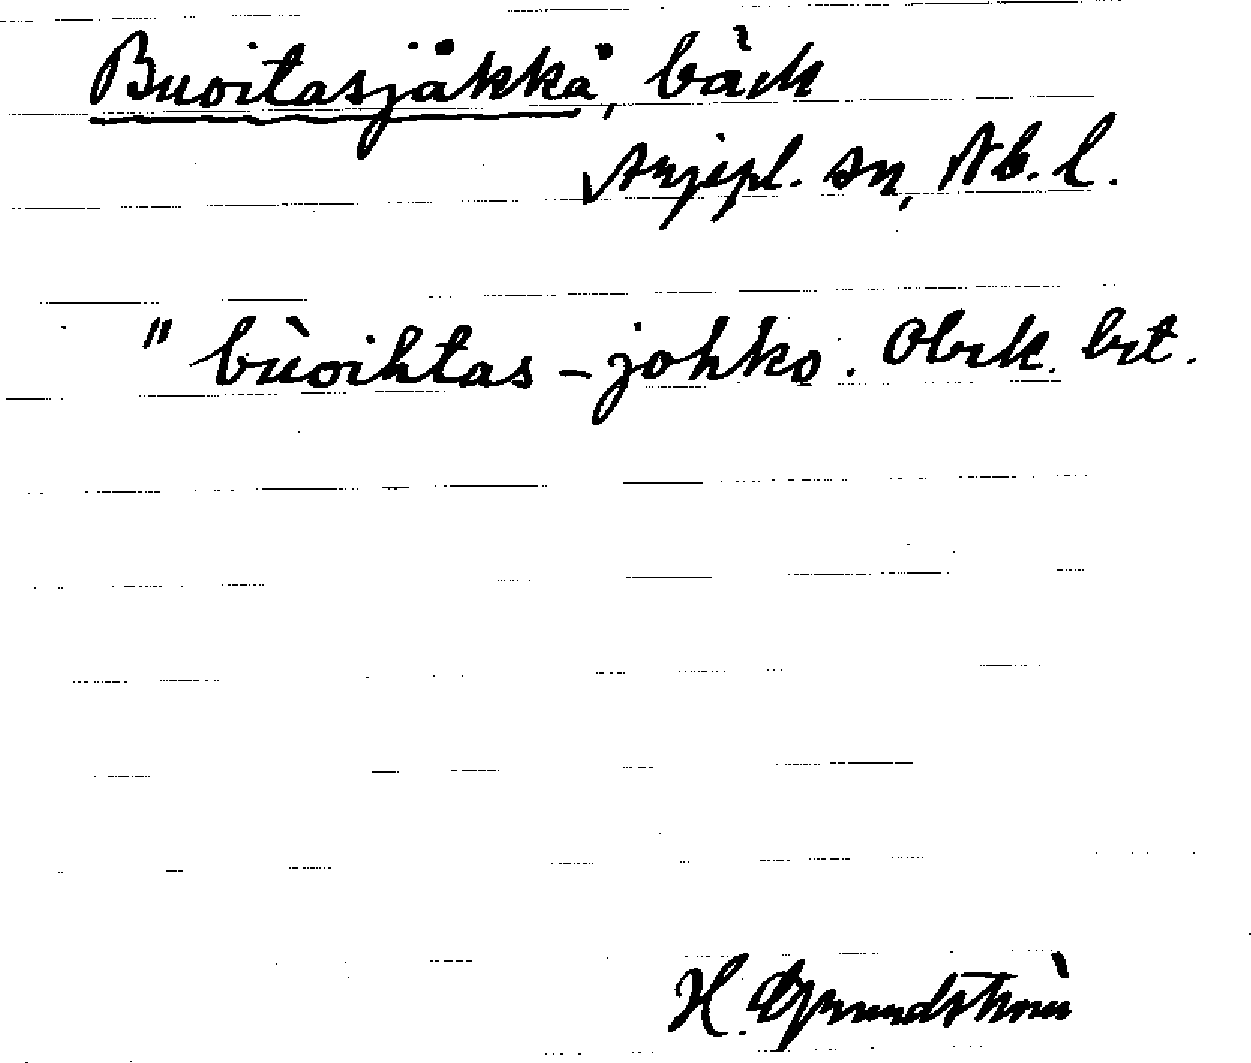 Buoitasjåkkå, bäck
Arjepl. sn, Nb. l.
" bùoihtas-johko. Obek. bet.
H. Grundström